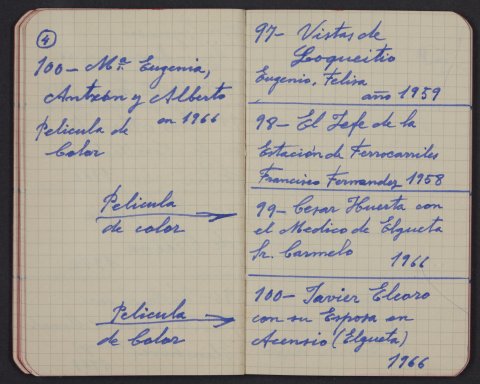 4
100- Mª Eugenia,
Antxón y Alberto
en 1966
Pelicula de
Color
Pelicula
de color
Pelicula
de Color
97- Vistas de
Loqueitio
Eugenio, Felisa
año 1959
98- El Jefe de la
Estación de Ferrocarriles
Francisco Fernandez 1958
99- Cesar Huerta con
el Medico de Elgueta
Sr. Carmelo
1966
100- Javier Elcoro
con su Esposa en
Acensio (Elgueta)
1966